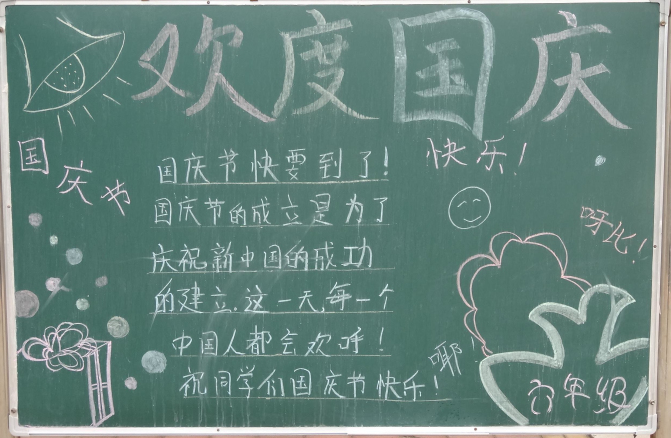 欢度国庆
国庆节
国庆节快要到了!
国庆节的成立是为了
庆祝新中国的成功
的建立.这一天,每一个
中国人都会欢呼!
祝同学们国庆节快乐!
快乐!
呀比!
耶
六年级